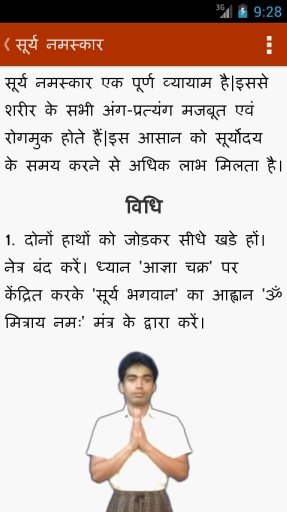 9:28
सूर्य नमस्कार
सूर्य नमस्कार एक पूर्ण व्यायाम है|इससे
शरीर के सभी अंग-प्रत्यंग मजबूत एवं
रोगमुक होते हैं|इस आसान को सूर्योदय
के समय करने से अधिक लाभ मिलता है।
विधि
1. दोनों हाथों को जोडकर सीधे खडे हों।
नेत्र बंद करें। ध्यान 'आज्ञा चक्र' पर
केंद्रित करके 'सूर्य भगवान' का आह्वान 'ॐ
मित्राय नमः' मंत्र के द्वारा करें।